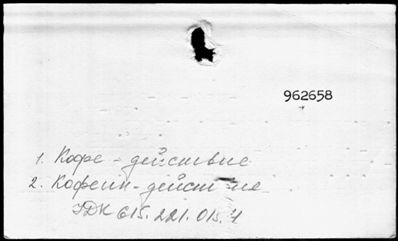 962658
1. Кофе - действие
2. Кофеин - действие
УДК 615.221.015.4